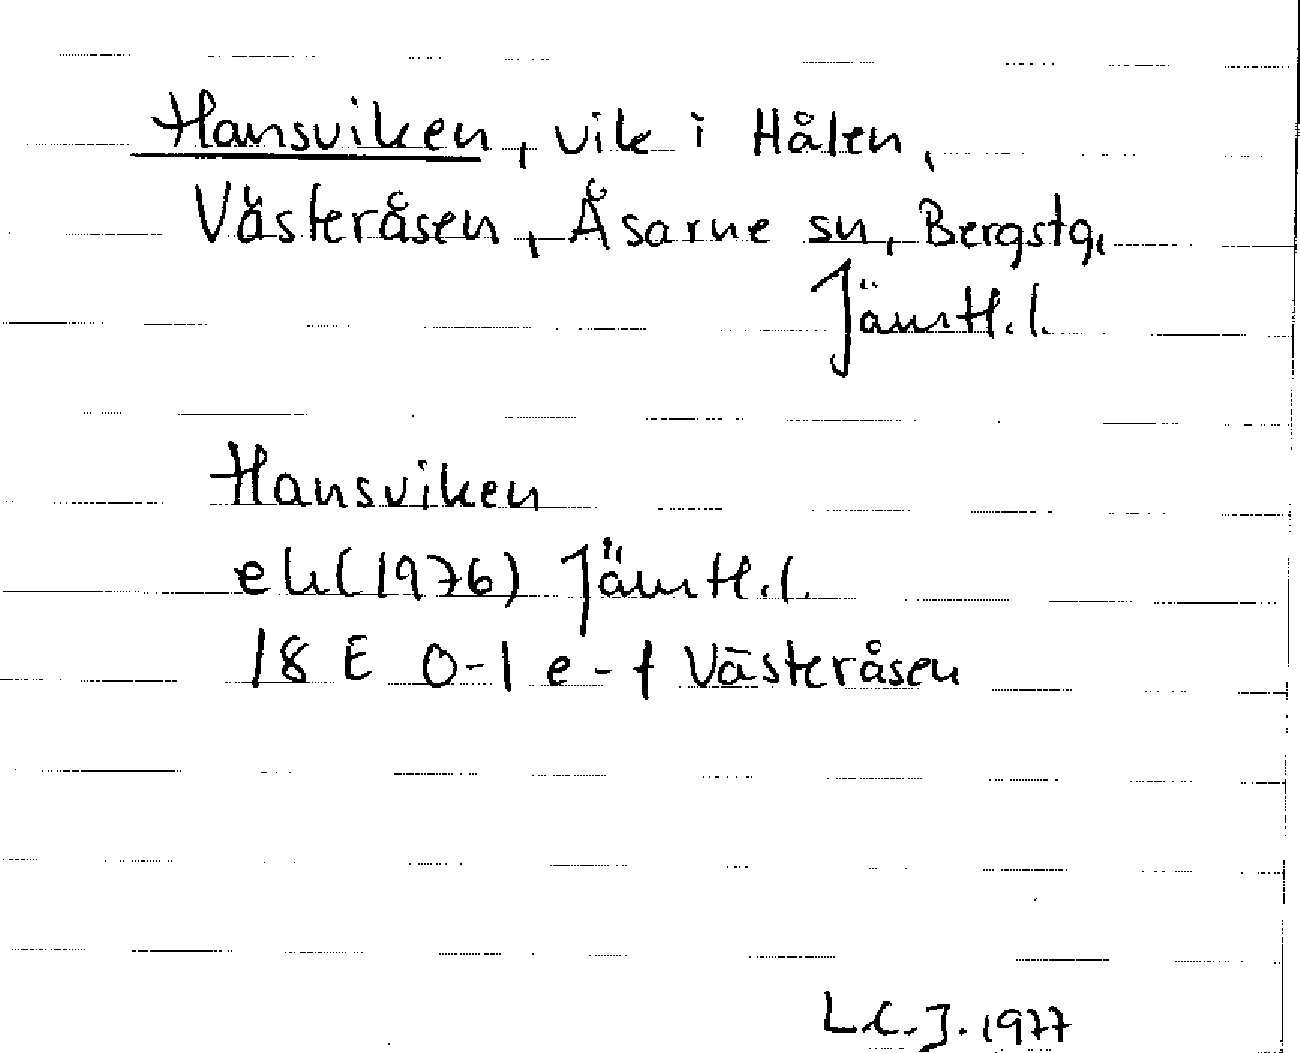 Hansviken, vik i Hålen,
Västeråsen, Åsarne sn, Bergstg,
Jämtl. l.
Hansviken
ek (1976) Jämtl. l.
18 E 0-1 e-f Västeråsen
L.C.J. 1977